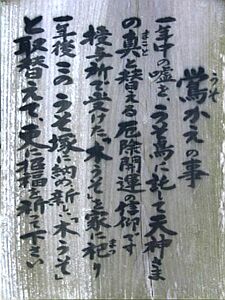 鷽かえの事
うそ
一年中の嘘を、うそ鳥に託して天神さま
の眞と替える厄除開運の信仰です
まこと
授与所で受けた"木うそ"を家に祀り
まつ
一年後このうそ塚に納め新しい"木うそ"
と取替えて、更に招福を祈って下さい